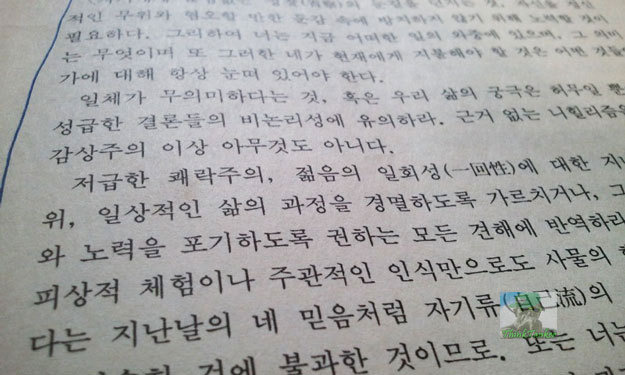 적인 무위와 혐오할 만한 둔감 속에 방치하지 않기 위해 노력할 것이
필요하다. 그리하여 너는 지금 어떠한 일의 와중에 있으며, 그 의미
는 무엇이며 또 그러한 네가 현재에게 지불해야 할 것은 어떤 것들인
가에 대해 항상 눈떠 있어야 한다.
일체가 무의미하다는 것, 혹은 우리 삶의 궁극은 허무일 뿐
성급한 결론들의 비논리성에 유의하라. 근거 없는 니힐리즘은
감상주의 이상 아무것도 아니다.
저급한 쾌락주의, 젊음의 일회성(一回性)에 대한 지나
위, 일상적인 삶의 과정을 경멸하도록 가르치거나, 그
와 노력을 포기하도록 권하는 모든 견해에 반역하라
피상적 체험이나 주관적인 인식만으로도 사물의
다는 지난날의 네 믿음처럼 자기류(自己流)의
것에 불과한 것이므로. 또는 너는